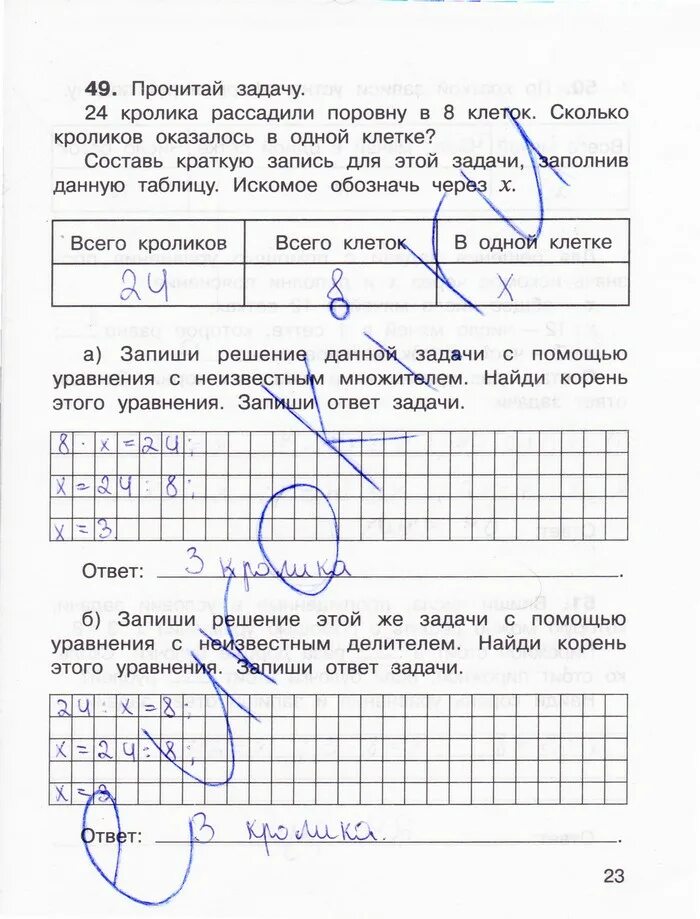 49. Прочитай задачу.
24 кролика рассадили поровну в 8 клеток. Сколько
кроликов оказалось в одной клетке?
Составь краткую запись для этой задачи, заполнив
данную таблицу. Искомое обозначь через x.
Всего кроликов Всего клеток В одной клетке
24 8 x
а) Запиши решение данной задачи с помощью
уравнения с неизвестным множителем. Найди корень
этого уравнения. Запиши ответ задачи.
8 · x = 24;
x = 24 : 8;
x = 3.
Ответ: 3 кролика.
б) Запиши решение этой же задачи с помощью
уравнения с неизвестным делителем. Найди корень
этого уравнения. Запиши ответ задачи.
24 : x = 8;
x = 24 : 8;
x = 3
Ответ: 3 кролика.
23